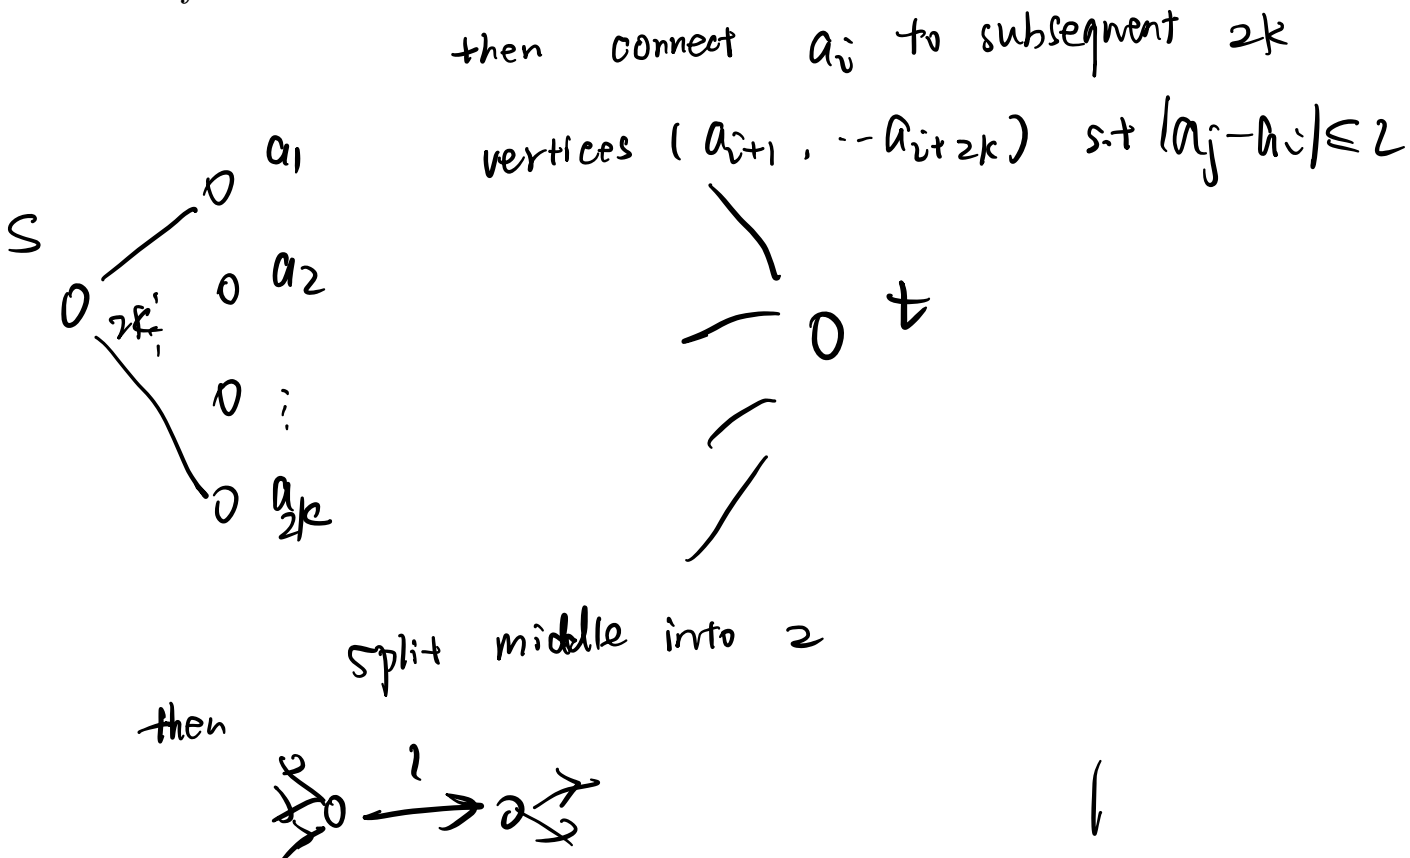 then connect aᵢ to subsequent 2k
vertices (aᵢ₊₁, ... aᵢ₊₂ₖ) s.t |aⱼ-aᵢ|≤2
a₁
S
a₂
2k
t
⋮
a₂ₖ
split middle into 2
then
1